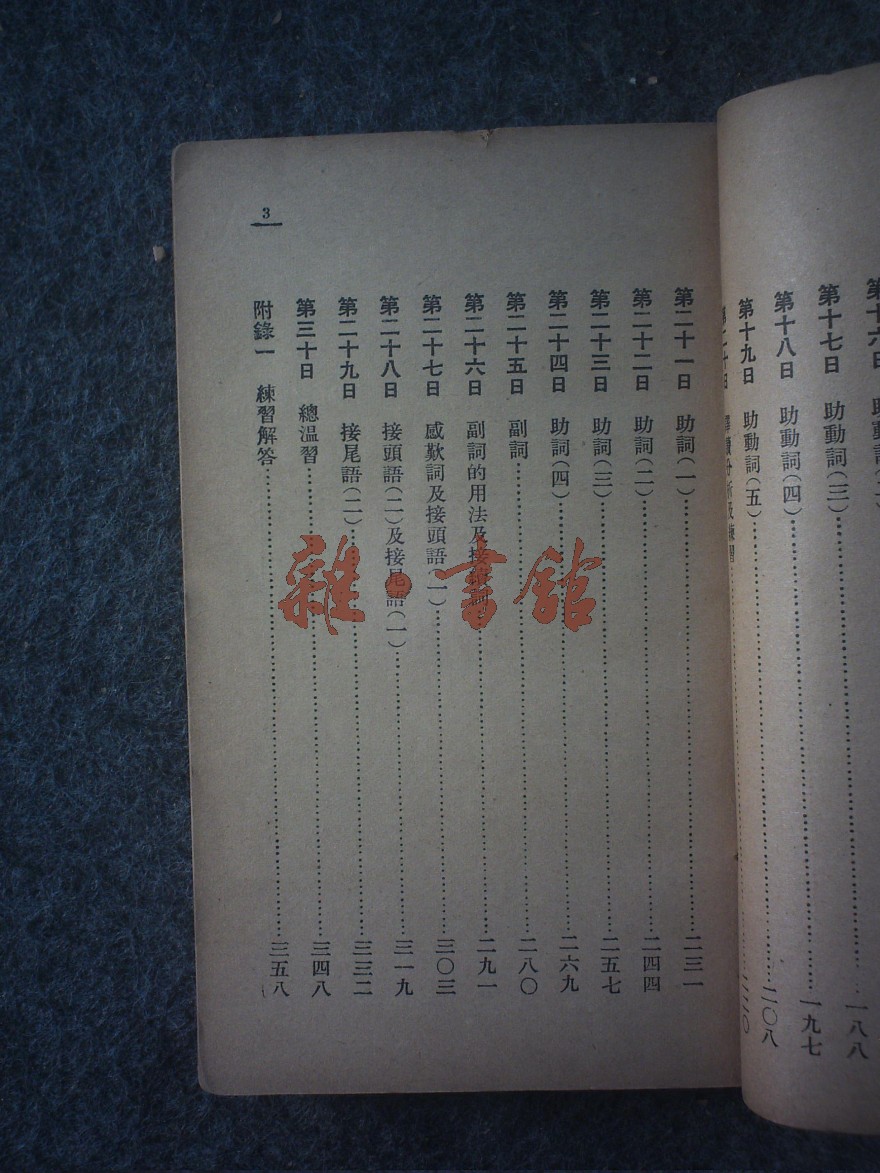 第十七日 助動詞(三)……一八八
第十八日 助動詞(四)……一九七
第十九日 助動詞(五)……二〇八
3
第二十一日 助詞(一)……二三一
第二十二日 助詞(二)……二四四
第二十三日 助詞(三)……二五七
第二十四日 助詞(四)……二六九
第二十五日 副詞……二八〇
第二十六日 副詞的用法及接續詞……二九一
第二十七日 感歎詞及接頭語(一)……三〇三
第二十八日 接頭語(二)及接尾語(一)……三一九
第二十九日 接尾語(二)……三三二
第三十日 總温習……三四八
附錄一 練習解答……三五八
雜·書館